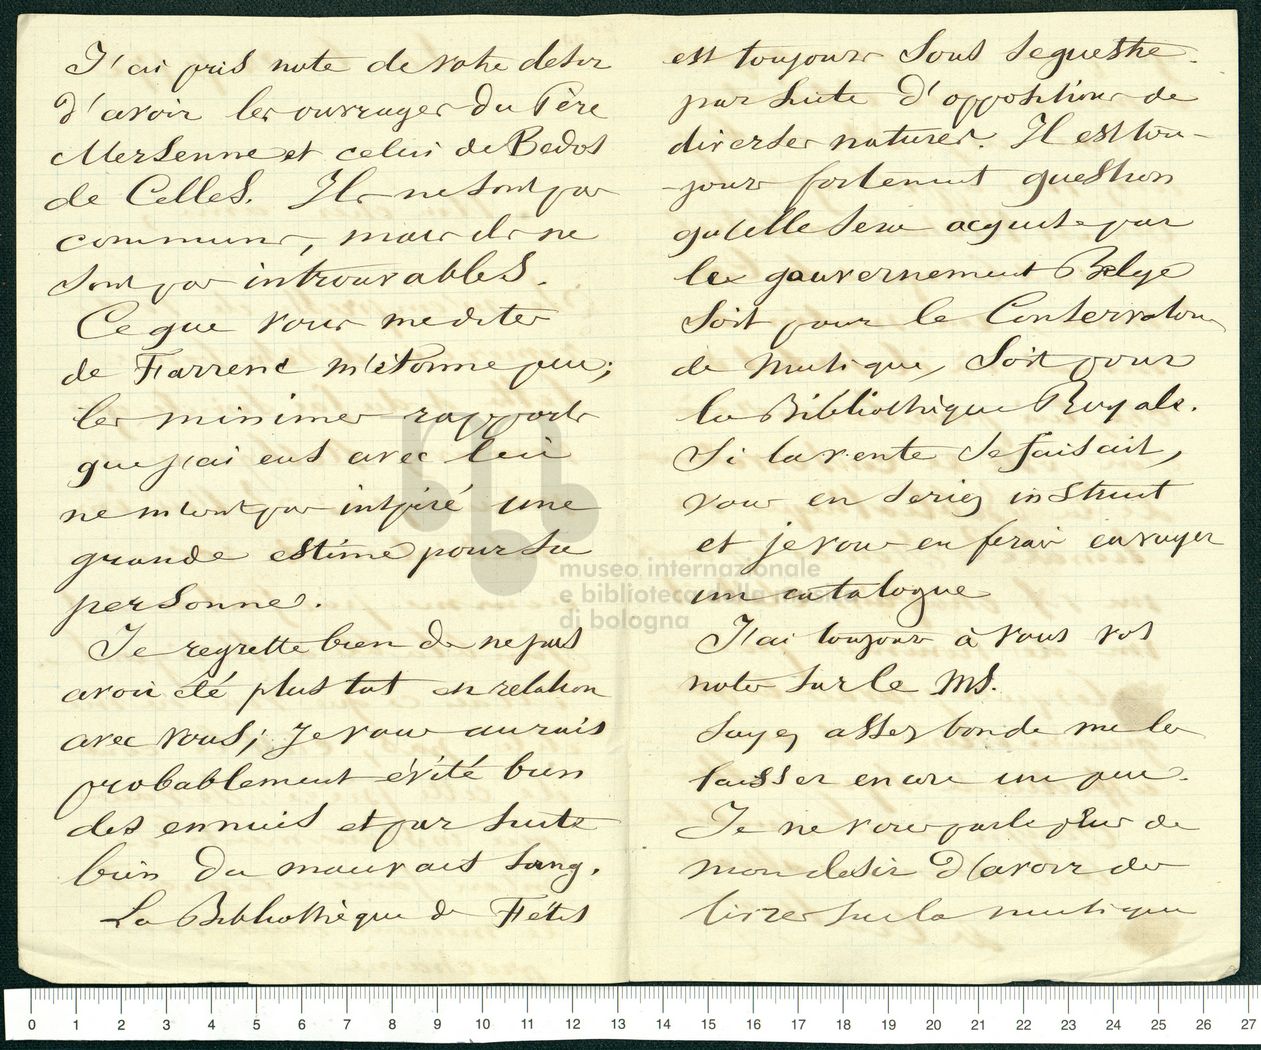 J'ai pris note de votre desir
d'avoir les ouvrages du Père
Mersenne et celui de Bedos
de Celles. Ils ne sont pas
communs, mais ils ne
sont pas introuvables.
Ce que vous me dites
de Farrenc m'étonne peu;
les minimes rapports
que j'ai eus avec lui
ne m'ont pas inspiré une
grande estime pour sa
personne.
Je regrette bien de ne pas
avoir été plus tot en relation
avec vous; je vous aurais
probablement évité bien
des ennuis et par suite
bien du mauvais sang.
La Bibliothèque de Fétis
est toujours sous sequestre
par suite d'oppositions de
diverses natures. Il est tou-
-jours fortement question
qu'elle sera acquise par
le gouvernement Belge
soit pour le Conservatoire
de musique, soit pour
la Bibliothèque Royale.
Si la vente se faisait,
vous en seriez instruit
et je vous en ferais envoyer
un catalogue
J'ai toujours à vous vos
notes sur le MS.
Soyez assez bon de me les
laisser encore un peu.
Je ne vous parle plus de
mon desir d'avoir des
livres sur la musique
museo internazionale
e biblioteca della musica
di bologna
0 1 2 3 4 5 6 7 8 9 10 11 12 13 14 15 16 17 18 19 20 21 22 23 24 25 26 27